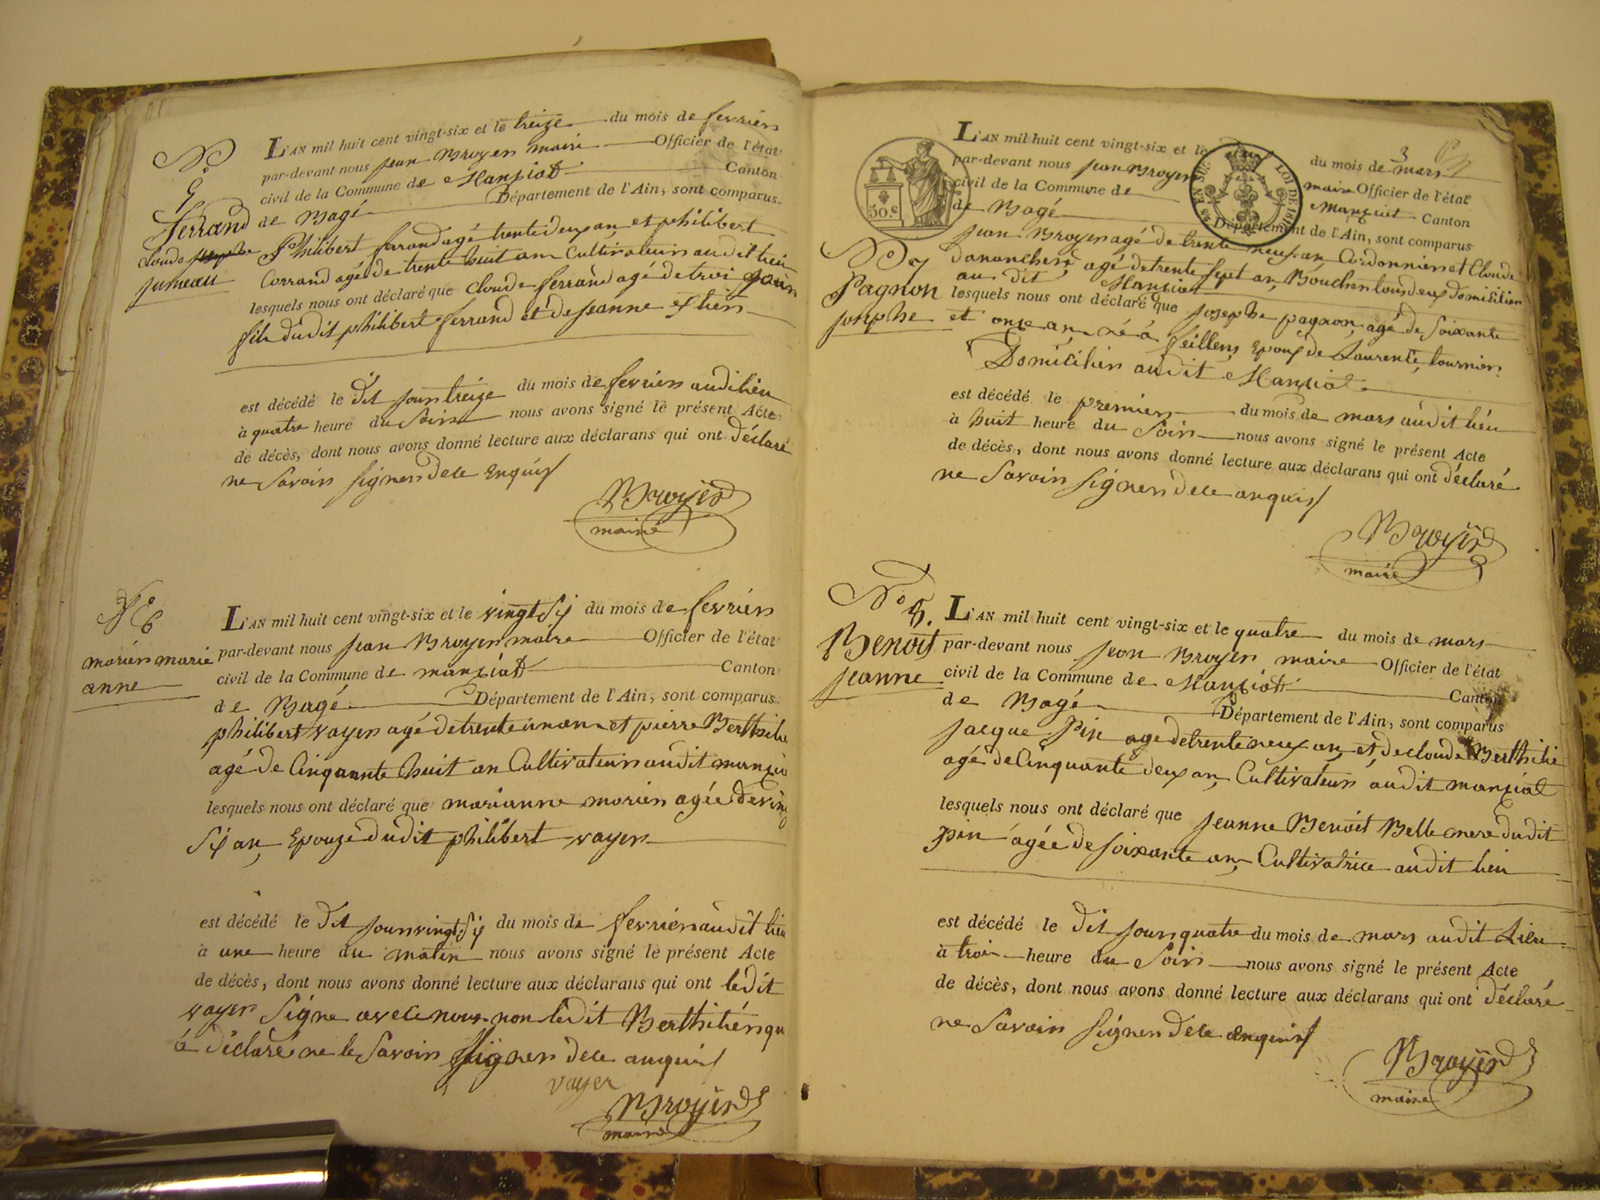 No
5
ferrand
cloude
jumeau
L'AN mil huit cent vingt-six et le treize du mois de fevrier
par-devant nous jean Broyer maire Officier de l'état
civil de la Commune de Manziat Canton
de Bagé Département de l'Ain, sont comparus
Philibert ferrand agé trente deux an et philibert
Corrand agé de trente huit an Cultivateur audit lieu
lesquels nous ont déclaré que Cloude ferrand agé de troi jour
fils dudit philibert ferrand et de jeanne
est décédé le dit jour treize du mois de fevrier audit lieu
à quatre heure du Soir nous avons signé le présent Acte
de décès, dont nous avons donné lecture aux déclarans qui ont déclaré
ne Savoir signer de ce enquis
Broyer
maire
No 6
morier marie
anne
L'AN mil huit cent vingt-six et le vingt six du mois de fevrier
par-devant nous jean Broyer maire Officier de l'état
civil de la Commune de manziat Canton
de Bagé Département de l'Ain, sont comparus
philibert voyer agé de trente an et pierre Berthilie
agé de Cinquante huit an Cultivateur audit manzia
lesquels nous ont déclaré que marianne morier agée de ving
Six an Epouze dudit philibert voyer
est décédé le dit jour vingt six du mois de fevrier audit lieu
à une heure du matin nous avons signé le présent Acte
de décès, dont nous avons donné lecture aux déclarans qui ont ledit
voyer Signe avec nous non ledit Berthilier qu
a déclaré ne le Savoir Signer de ce anquis
voyer
Broyer
maire
30 c
L'AN mil huit cent vingt-six et le 3 du mois de mars
par-devant nous jean Broyer maire Officier de l'état
civil de la Commune de Manziat Canton
de Bagé Département de l'Ain, sont comparus
No 7
Pagnon
josephe
jean Broyer agé de trente neuf an Cordonnier et Cloude
danancher agé de trente sept an Boucher tous deux domicilier
au dit Manziat
lesquels nous ont déclaré que josephe pagnon agé de Soixante
et onze an né à feillens Epoux de Laurente tournier
Domicilier audit Manziat
est décédé le premier du mois de mars audit lieu
à huit heure du Soir nous avons signé le présent Acte
de décès, dont nous avons donné lecture aux déclarans qui ont déclaré
ne Savoir Signer de ce anquis
Broyer
maire
No 8.
Benoit
jeanne
L'AN mil huit cent vingt-six et le quatre du mois de mars
par-devant nous jean Broyer maire Officier de l'état
civil de la Commune de Manziat Canton
de Bagé Département de l'Ain, sont comparus
jacque Pin agé de trente neuf an et de cloude Berthilie
agé de Cinquante deux an Cultivateur audit manziat
lesquels nous ont déclaré que jeanne Benoit Belle mere dudit
pin agée de soixante an Cultivatrice audit lieu
est décédé le dit jour quatre du mois de mars audit Lieu
à troi heure du Soir nous avons signé le présent Acte
de décès, dont nous avons donné lecture aux déclarans qui ont déclaré
ne Savoir Signer de ce anquis
Broyer
maire